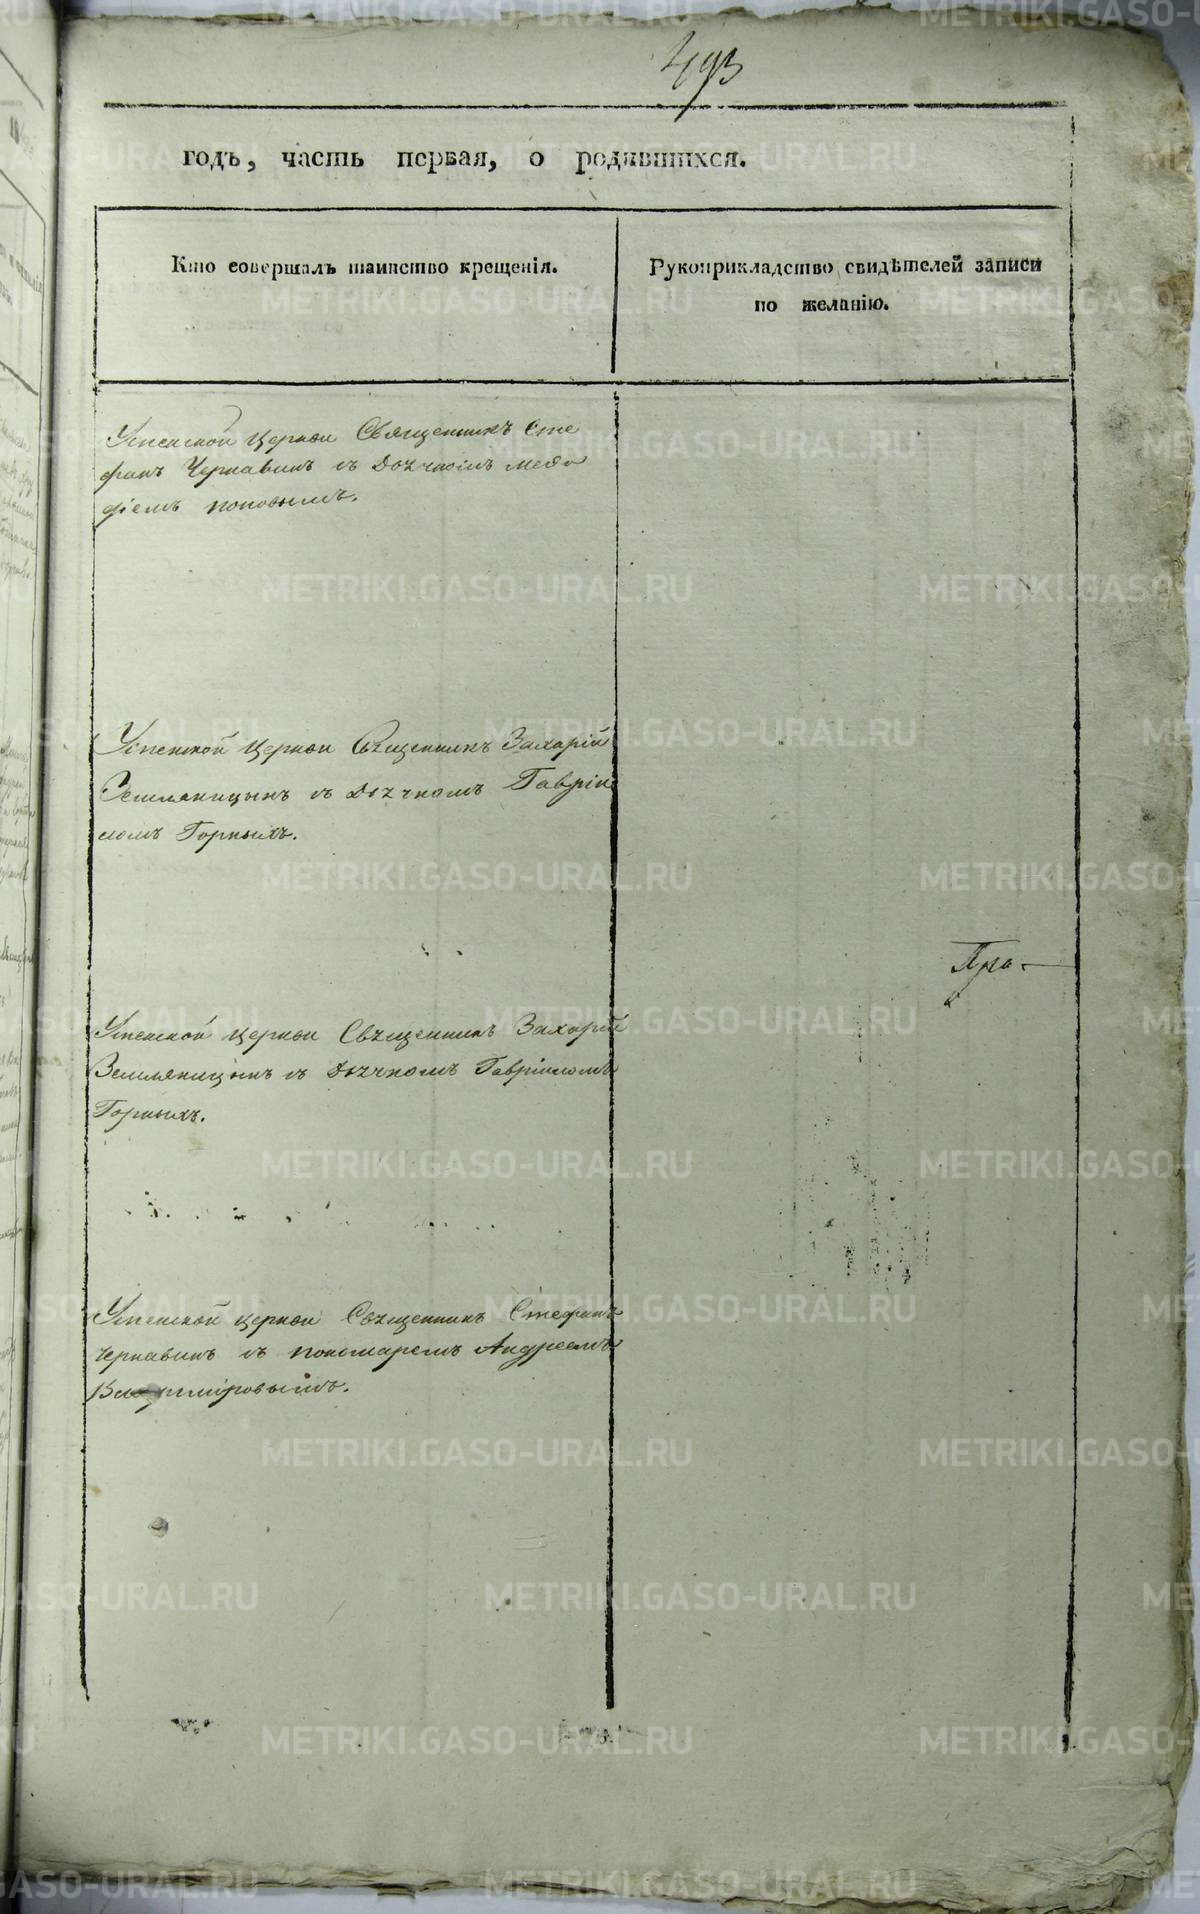 493
годъ, часть первая, о родившихся.
Кто совершалъ таинство крещенія.
Рукоприкладство свидѣтелей записи
по желанію.
Успенской Церкви Священникъ Сте
фанъ Чернавинъ съ Дьячкомъ Мефо
діемъ поповымъ.
Успенской Церкви Священникъ Захарій
Земляницынъ съ Дьячкомъ Гавріи
ломъ Горныхъ.
Пра-
Успенской Церкви Священникъ Захарій
Земляницынъ съ Дьячкомъ Гавріиломъ
Горныхъ.
Успенской церкви Священникъ Стефанъ
Чернавинъ съ пономаремъ Андреемъ
METRIKI.GASO-URAL.RU